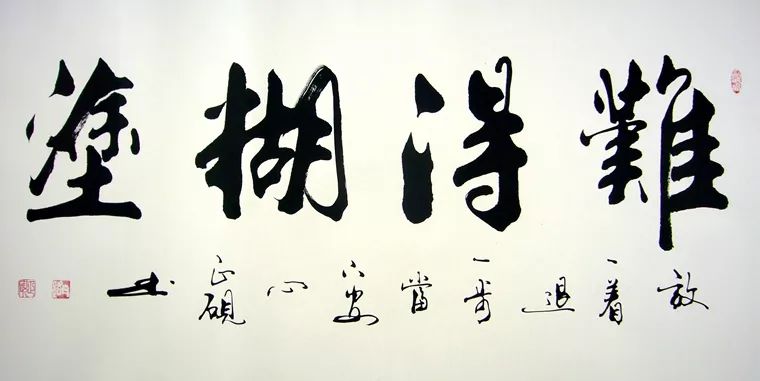 難得糊塗
放一着退一步當下安心正硯书